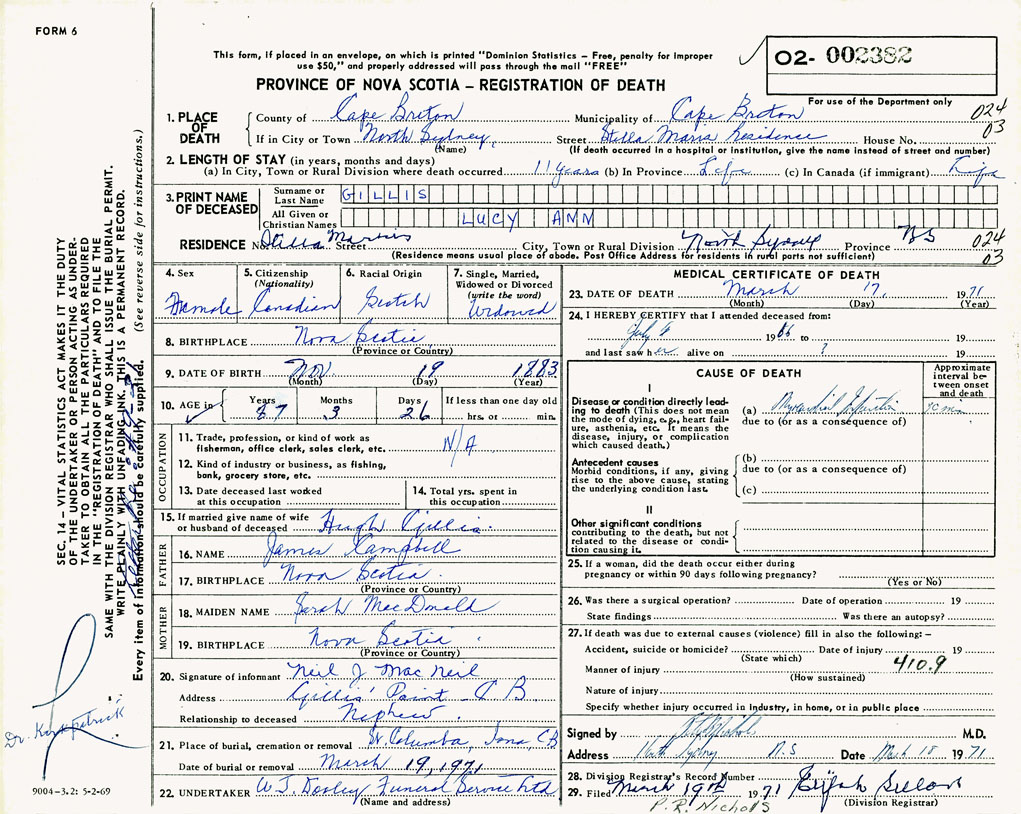 FORM 6
This form, if placed in an envelope, on which is printed "Dominion Statistics — Free, penalty for improper
use $50," and properly addressed will pass through the mail "FREE"
02- 002382
PROVINCE OF NOVA SCOTIA — REGISTRATION OF DEATH
For use of the Department only
1. PLACE OF DEATH
County of Cape Breton Municipality of Cape Breton 024
If in City or Town North Sydney, Street Stella Maris Residence House No. 03
(Name) (If death occurred in a hospital or institution, give the name instead of street and number)
2. LENGTH OF STAY (in years, months and days)
(a) In City, Town or Rural Division where death occurred 11 years (b) In Province Life (c) In Canada (if immigrant) Life
3. PRINT NAME OF DECEASED
Surname or Last Name GILLIS
All Given or Christian Names LUCY ANN
RESIDENCE No. Stella Maris Street City, Town or Rural Division North Sydney Province NS 024
(Residence means usual place of abode. Post Office Address for residents in rural parts not sufficient) 03
4. Sex
Female
5. Citizenship
(Nationality)
Canadian
6. Racial Origin
Scotch
7. Single, Married,
Widowed or Divorced
(write the word)
Widowed
8. BIRTHPLACE Nova Scotia
(Province or Country)
9. DATE OF BIRTH Nov 19 1883
(Month) (Day) (Year)
10. AGE in Years Months Days If less than one day old
87 3 26 hrs. or min.
OCCUPATION
11. Trade, profession, or kind of work as
fisherman, office clerk, sales clerk, etc. N/A
12. Kind of industry or business, as fishing,
bank, grocery store, etc.
13. Date deceased last worked
at this occupation
14. Total yrs. spent in
this occupation
15. If married give name of wife
or husband of deceased Hugh Gillis
FATHER
16. NAME James Campbell
17. BIRTHPLACE Nova Scotia
(Province or Country)
MOTHER
18. MAIDEN NAME Sarah MacDonald
19. BIRTHPLACE Nova Scotia
(Province or Country)
20. Signature of informant Neil J MacNeil
Address Gillis' Point C B
Relationship to deceased Nephew
21. Place of burial, cremation or removal St. Columba, Iona, CB
Date of burial or removal March 19, 1971
22. UNDERTAKER W J Dooley Funeral Service Ltd
(Name and address)
MEDICAL CERTIFICATE OF DEATH
23. DATE OF DEATH March 17, 1971
(Month) (Day) (Year)
24. I HEREBY CERTIFY that I attended deceased from:
July 4 1966 to 19
and last saw her alive on ? 19
CAUSE OF DEATH
Approximate
interval be-
tween onset
and death
I
Disease or condition directly lead-
ing to death (This does not mean
the mode of dying, e.g., heart fail-
ure, asthenia, etc. It means the
disease, injury, or complication
which caused death.)
(a) Myocardial Infarction
due to (or as a consequence of)
Antecedent causes
Morbid conditions, if any, giving
rise to the above cause, stating
the underlying condition last.
(b)
due to (or as a consequence of)
(c)
II
Other significant conditions
contributing to the death, but not
related to the disease or condi-
tion causing it.
25. If a woman, did the death occur either during
pregnancy or within 90 days following pregnancy?
(Yes or No)
26. Was there a surgical operation? Date of operation 19
State findings Was there an autopsy?
27. If death was due to external causes (violence) fill in also the following: —
Accident, suicide or homicide? Date of injury 19
(State which)
Manner of injury 410.9
(How sustained)
Nature of injury
Specify whether injury occurred in industry, in home, or in public place
Signed by M.D.
Address North Sydney N.S Date March 18 1971
28. Division Registrar's Record Number
29. Filed March 19th 1971
(Division Registrar)
P.R. Nicholls
SEC. 14 — VITAL STATISTICS ACT MAKES IT THE DUTY
OF THE UNDERTAKER OR PERSON ACTING AS UNDER-
TAKER TO OBTAIN ALL THE PARTICULARS REQUIRED
IN THE "REGISTRATION OF DEATH" AND TO FILE THE
SAME WITH THE DIVISION REGISTRAR WHO SHALL ISSUE THE BURIAL PERMIT.
WRITE PLAINLY WITH UNFADING INK. THIS IS A PERMANENT RECORD.
Every item of information should be carefully supplied. (See reverse side for instructions.)
Dr. Kirkpatrick
9004-3.2: 5-2-69